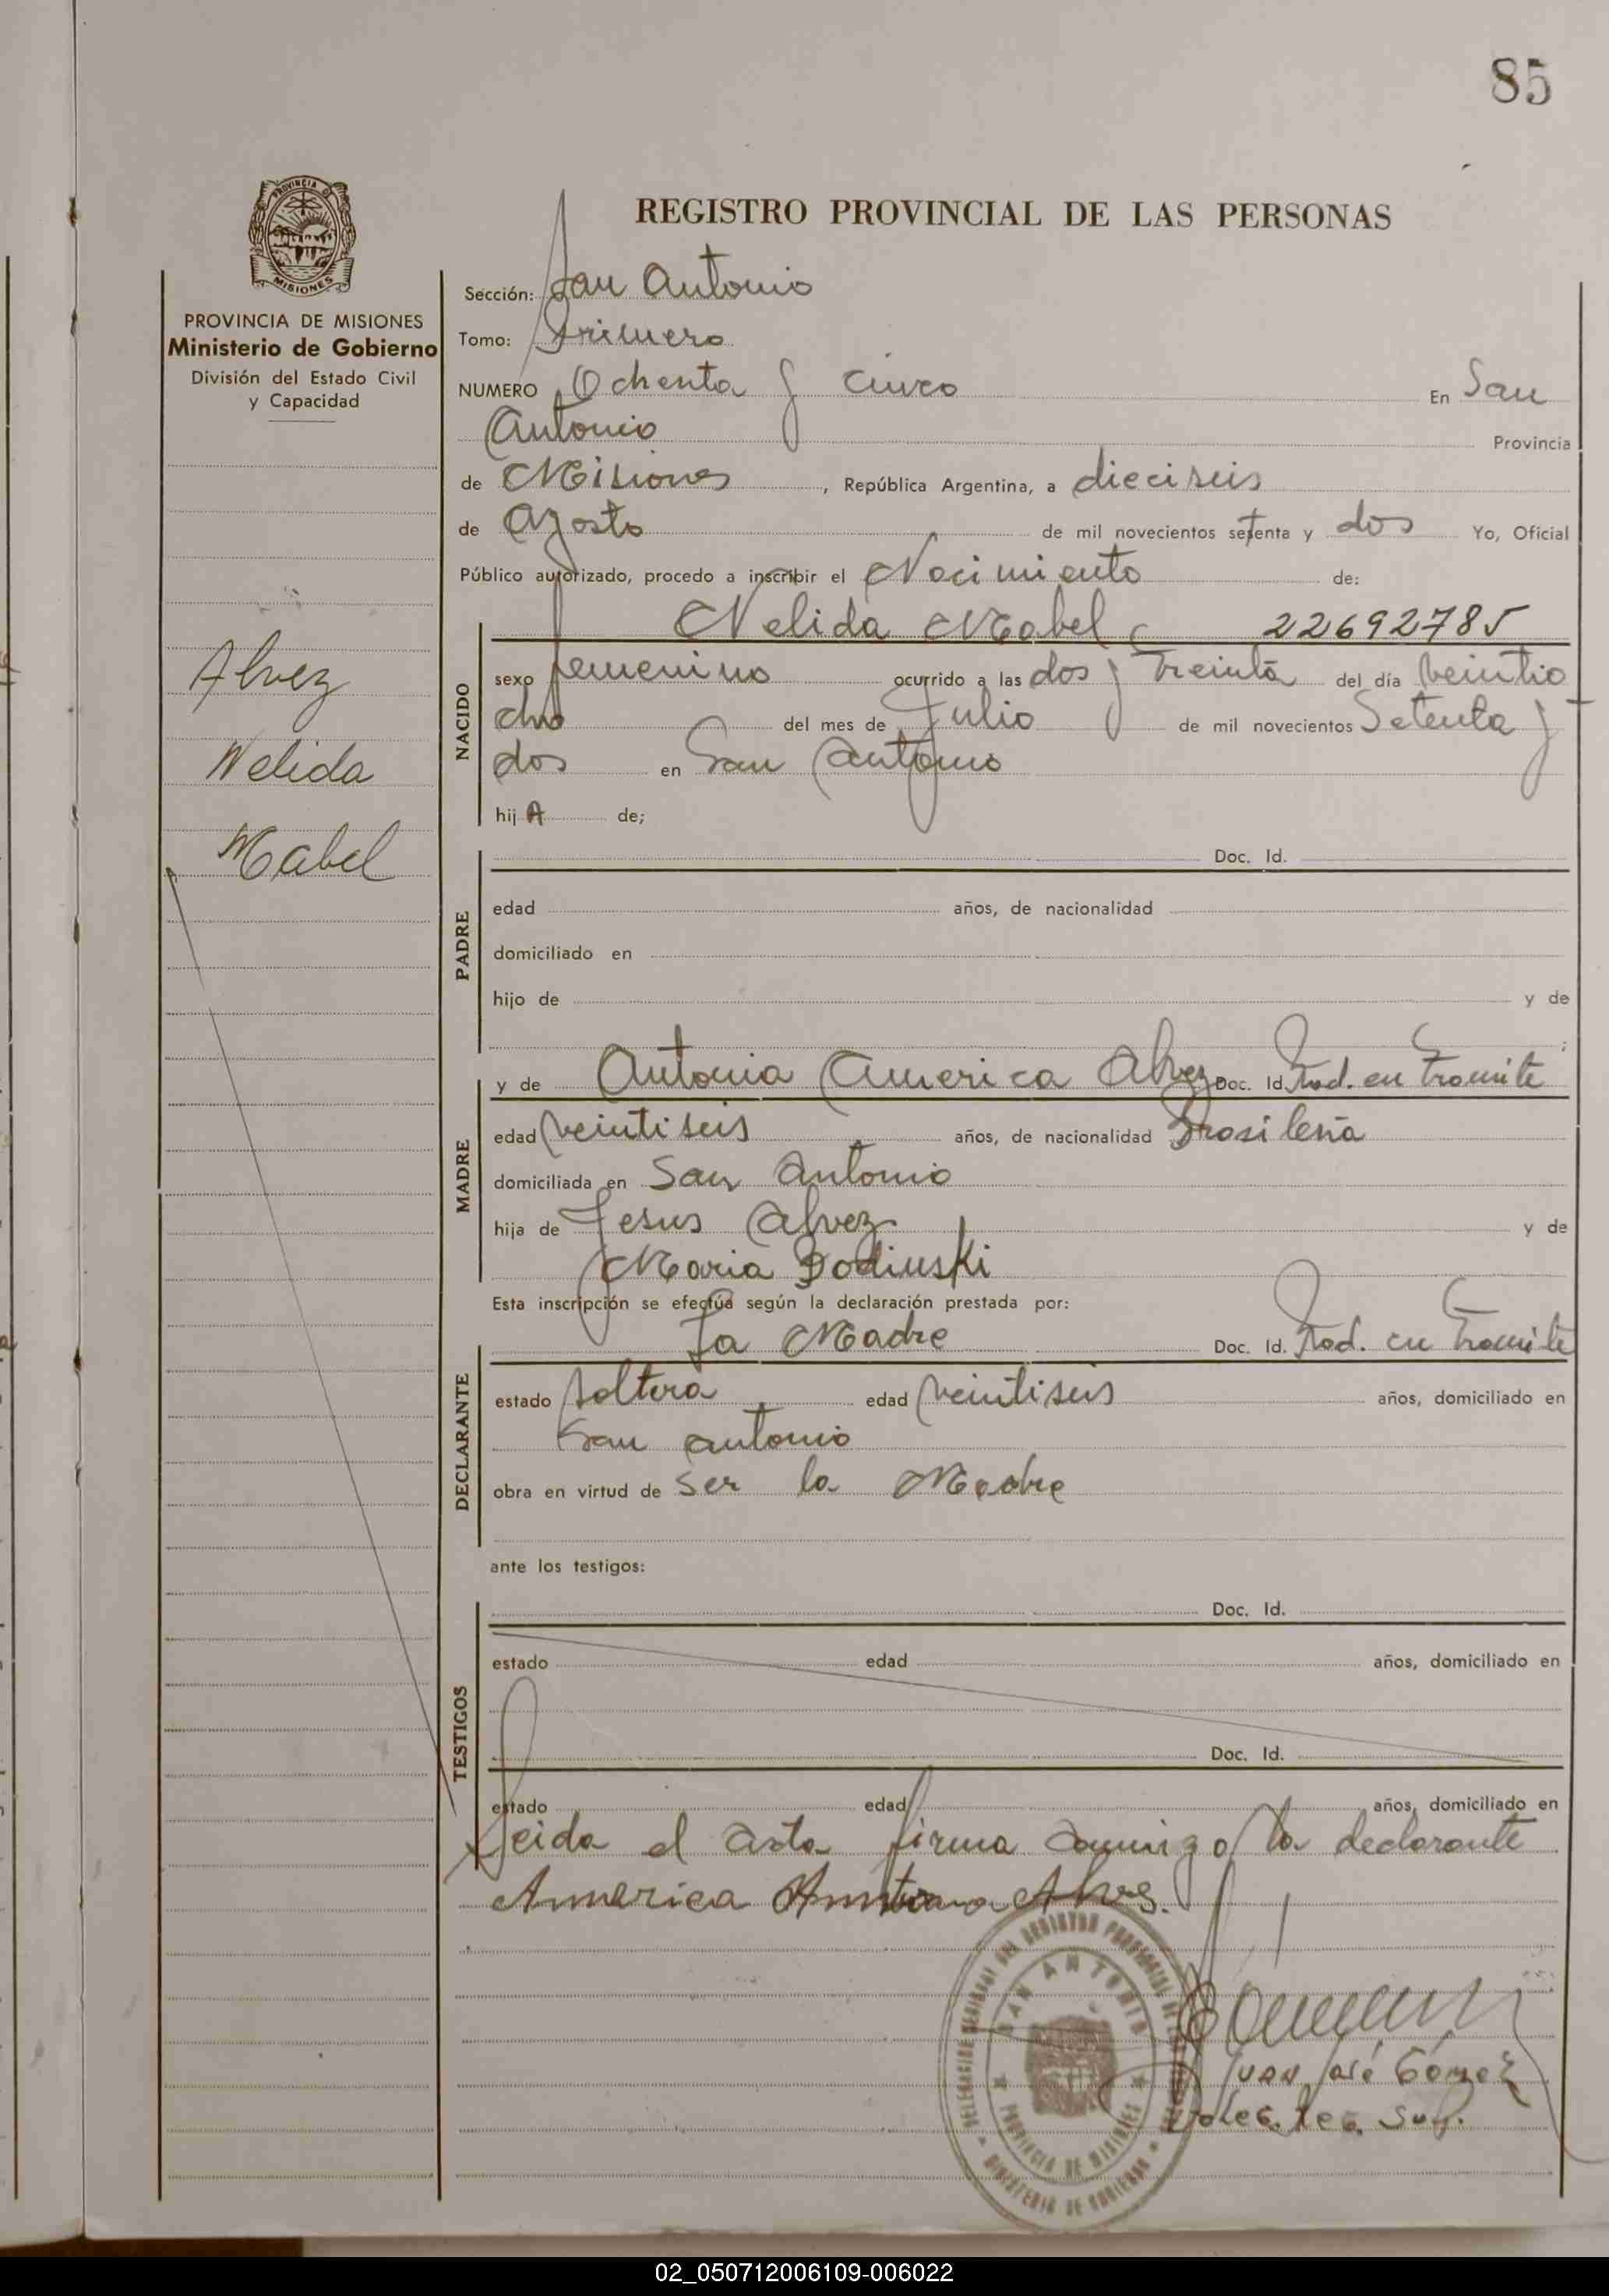 85
PROVINCIA DE MISIONES
PROVINCIA DE MISIONES
Ministerio de Gobierno
División del Estado Civil
y Capacidad
Alvez
Nelida
Mabel
REGISTRO PROVINCIAL DE LAS PERSONAS
Sección: San Antonio
Tomo: Primero
NUMERO Ochenta y cinco En San
Antonio Provincia
de Misiones, República Argentina, a dieciseis
de Agosto de mil novecientos setenta y dos Yo, Oficial
Público autorizado, procedo a inscribir el Nacimiento de:
Nelida Mabel 22692785
NACIDO
sexo femenino ocurrido a las dos y treinta del día veintio
cho del mes de Julio de mil novecientos Setenta y
dos en San Antonio
hij A de;
PADRE
Doc. Id.
edad años, de nacionalidad
domiciliado en
hijo de y de
;
MADRE
y de Antonia America Alvez Doc. Id. Rad. en Tramite
edad veintiseis años, de nacionalidad Brasileña
domiciliada en San Antonio
hija de Jesus Alvez y de
Maria Bodiuski
Esta inscripción se efectúa según la declaración prestada por:
DECLARANTE
La Madre Doc. Id. Rad. en Tramite
estado Soltera edad veintiseis años, domiciliado en
San Antonio
obra en virtud de ser la Madre
ante los testigos:
TESTIGOS
Doc. Id.
estado edad años, domiciliado en
Doc. Id.
estado edad años, domiciliado en
Leida el acta firma conmigo la declarante
America Alves.
SAN ANTONIO
PROVINCIA DE MISIONES
MINISTERIO DE GOBIERNO
Juan José Gómez
Deleg. Reg. Sup.
02_050712006109-006022